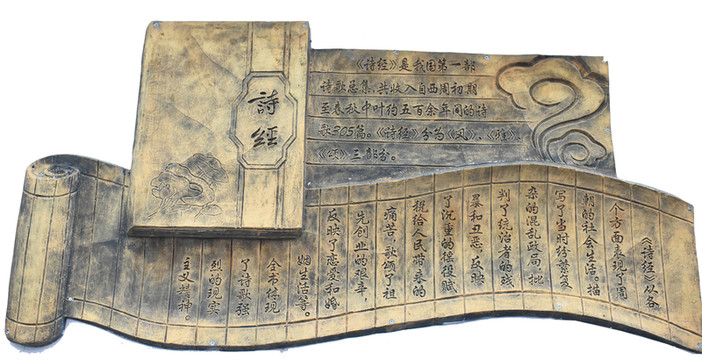 詩經
《诗经》是我国第一部
诗歌总集,共收入自西周初期
至春秋中叶约五百余年间的诗
歌305篇。《诗经》分为《风》、《雅》、
《颂》三部分。
《诗经》从各
个方面表现了周
朝的社会生活。描
写了当时纷繁复
杂的混乱政局,批
判了统治者的残
暴和丑恶,反映
了沉重的徭役赋
税给人民带来的
痛苦,歌颂了祖
先创业的艰辛,
反映了恋爱和婚
姻生活等。
全书体现
了诗歌强
烈的现实
主义精神。